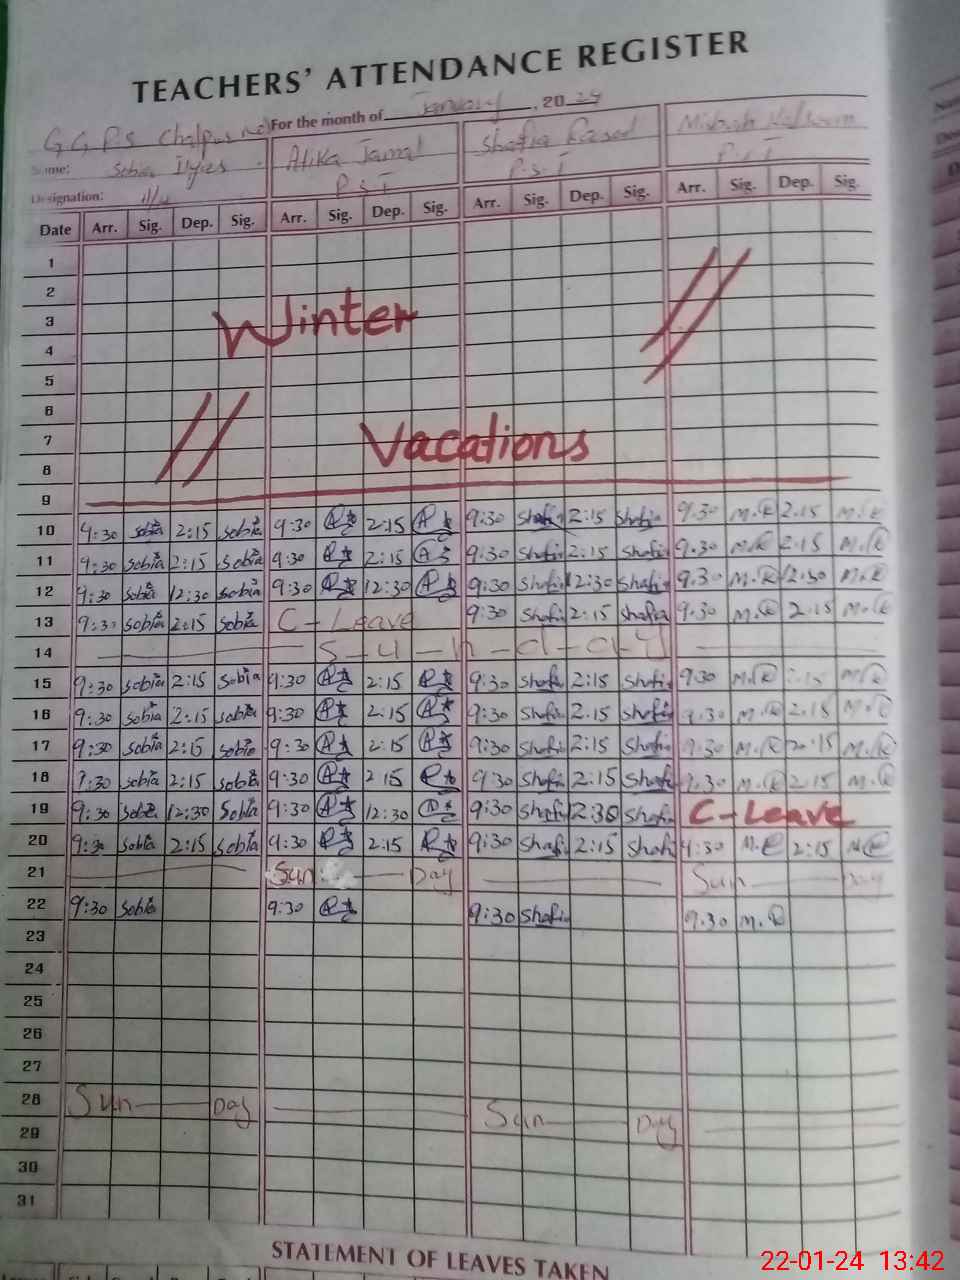 TEACHERS' ATTENDANCE REGISTER
For the month of January, 2024
G G P.S
Name: Sobia Ilyas Atika Jamal Shafia Misbah
Designation: P.S.T P.S.T P.S.T
Date Arr. Sig. Dep. Sig. Arr. Sig. Dep. Sig. Arr. Sig. Dep. Sig. Arr. Sig. Dep. Sig.
1
2
3 Winter
4
5
6
7 Vacations
8
9
10 9:30 Sobia 2:15 Sobia 9:30 2:15 9:30 Shafia 2:15 Shafia 9.30 M.K 2.15 M.K
11 9:30 Sobia 2:15 Sobia 9:30 2:15 9:30 Shafia 2:15 Shafia 9.30 M.K 2.15 M.K
12 9:30 Sobia 12:30 Sobia 9:30 12:30 9:30 Shafia 12:30 Shafia 9.30 M.K 12.30 M.K
13 9:30 Sobia 2:15 Sobia C-Leave 9:30 Shafia 2:15 Shafia 9.30 M.K 2.15 M.K
14 S-u-n-d-a-y
15 9:30 Sobia 2:15 Sobia 9:30 2:15 9:30 Shafi 2:15 Shafi 9.30 M.K 2.15 M.K
16 9:30 Sobia 2:15 Sobia 9:30 2:15 9:30 Shafi 2.15 Shafi 9.30 M.K 2.15 M.K
17 9:30 Sobia 2:15 Sobia 9:30 2:15 9:30 Shafi 2:15 Shafi 9.30 M.K 2.15 M.K
18 9:30 Sobia 2:15 Sobia 9:30 2 15 9:30 Shafi 2:15 Shafi 9.30 M.K 2.15 M.K
19 9:30 Sobia 12:30 Sobia 9:30 12:30 9:30 Shafi 12:30 Shafi C-Leave
20 9:30 Sobia 2:15 Sobia 9:30 2:15 9:30 Shafi 2:15 Shafi 9:30 M.K 2:15 M.K
21 Sun Day Sun Day
22 9:30 Sobia 9:30 9:30 Shafi 9.30 M.K
23
24
25
26
27
28 Sun Day Sun Day
29
30
31
STATEMENT OF LEAVES TAKEN
22-01-24 13:42